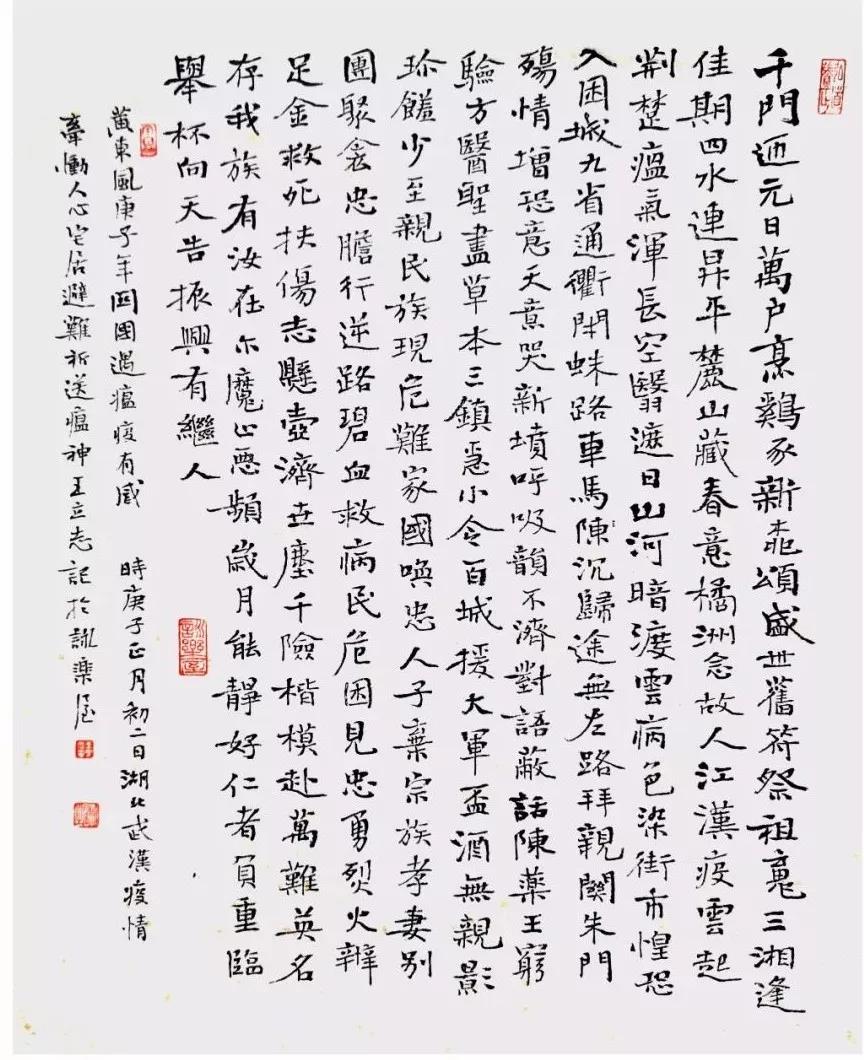 千門迎元日萬户烹鷄豕新桃頌盛世舊符祭祖魂三湘逢
佳期四水連昇平麓山藏春意橘洲念故人江漢疫雲起
荆楚瘟氣渾長空翳遮日山河暗渡雲病色染街市惶恐
入困城九省通衢閉蛛路車馬陳沉歸途無左路拜親闗朱門
殤情增恐意天意哭新墳呼吸韻不濟對語蔽話陳藥王窮
驗方醫聖盡草本三鎮急小令百城援大軍盃酒無親影
珍饈少至親民族現危難家國唤忠人子棄宗族孝妻别
團聚衾忠膽行逆路碧血救病民危困見忠勇烈火辯
足金救死扶傷志懸壺濟世塵千險楷模赴萬難英名
存我族有汝在尔魔心悪頻歲月能靜好仁者負重臨
舉杯向天告振興有繼人
黄東風庚子年回國遇瘟疫有感 時庚子正月初二日湖北武漢疫情
牽慟人心宅居避難祈送瘟神王立志記於詠樂居